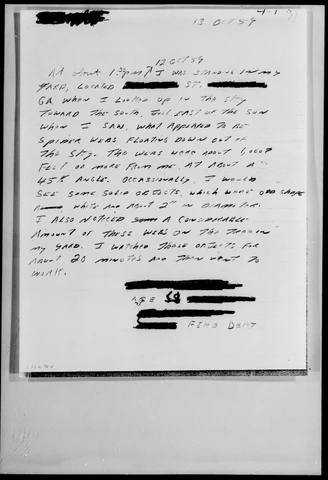 13 Oct 59
12 Oct 59
At about 1:30pm I was standing in my
yard, located St.
Ga when I looked up in the sky
toward the south, just east of the sun
when I saw, what appeared to be
spider webs floating down out of
the sky. The webs were about 1,000
feet or more from me, at about a
45th angle. Occasionally, I would
see some solid objects, which were odd shape
white and about 2" in diameter.
I also noticed a considerable
amount of these webs on the trees in
my yard. I watched those objects for
about 20 minutes and then went to
work.
Age 58
Fire Dept